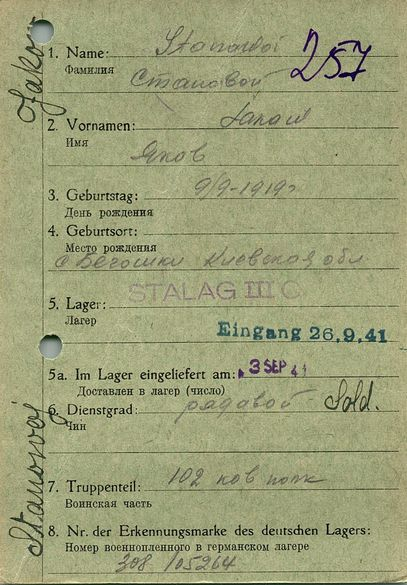 Jakow
1. Name: Stanowoi 257
Фамилия Становой
2. Vornamen:
Имя
Яков
3. Geburtstag: 9/9-1919г
День рождения
4. Geburtsort:
Место рождения
Киевская обл
STALAG III C
5. Lager:
Лагер
Eingang 26.9.41
5a. Im Lager eingeliefert am: 3 SEP 41
Доставлен в лагер (число)
6. Dienstgrad: рядовой Sold.
Чин
Stanowoj
7. Truppenteil: 102
Воинская часть
8. Nr. der Erkennungsmarke des deutschen Lagers:
Номер военнопленного в германском лагере
308/05264